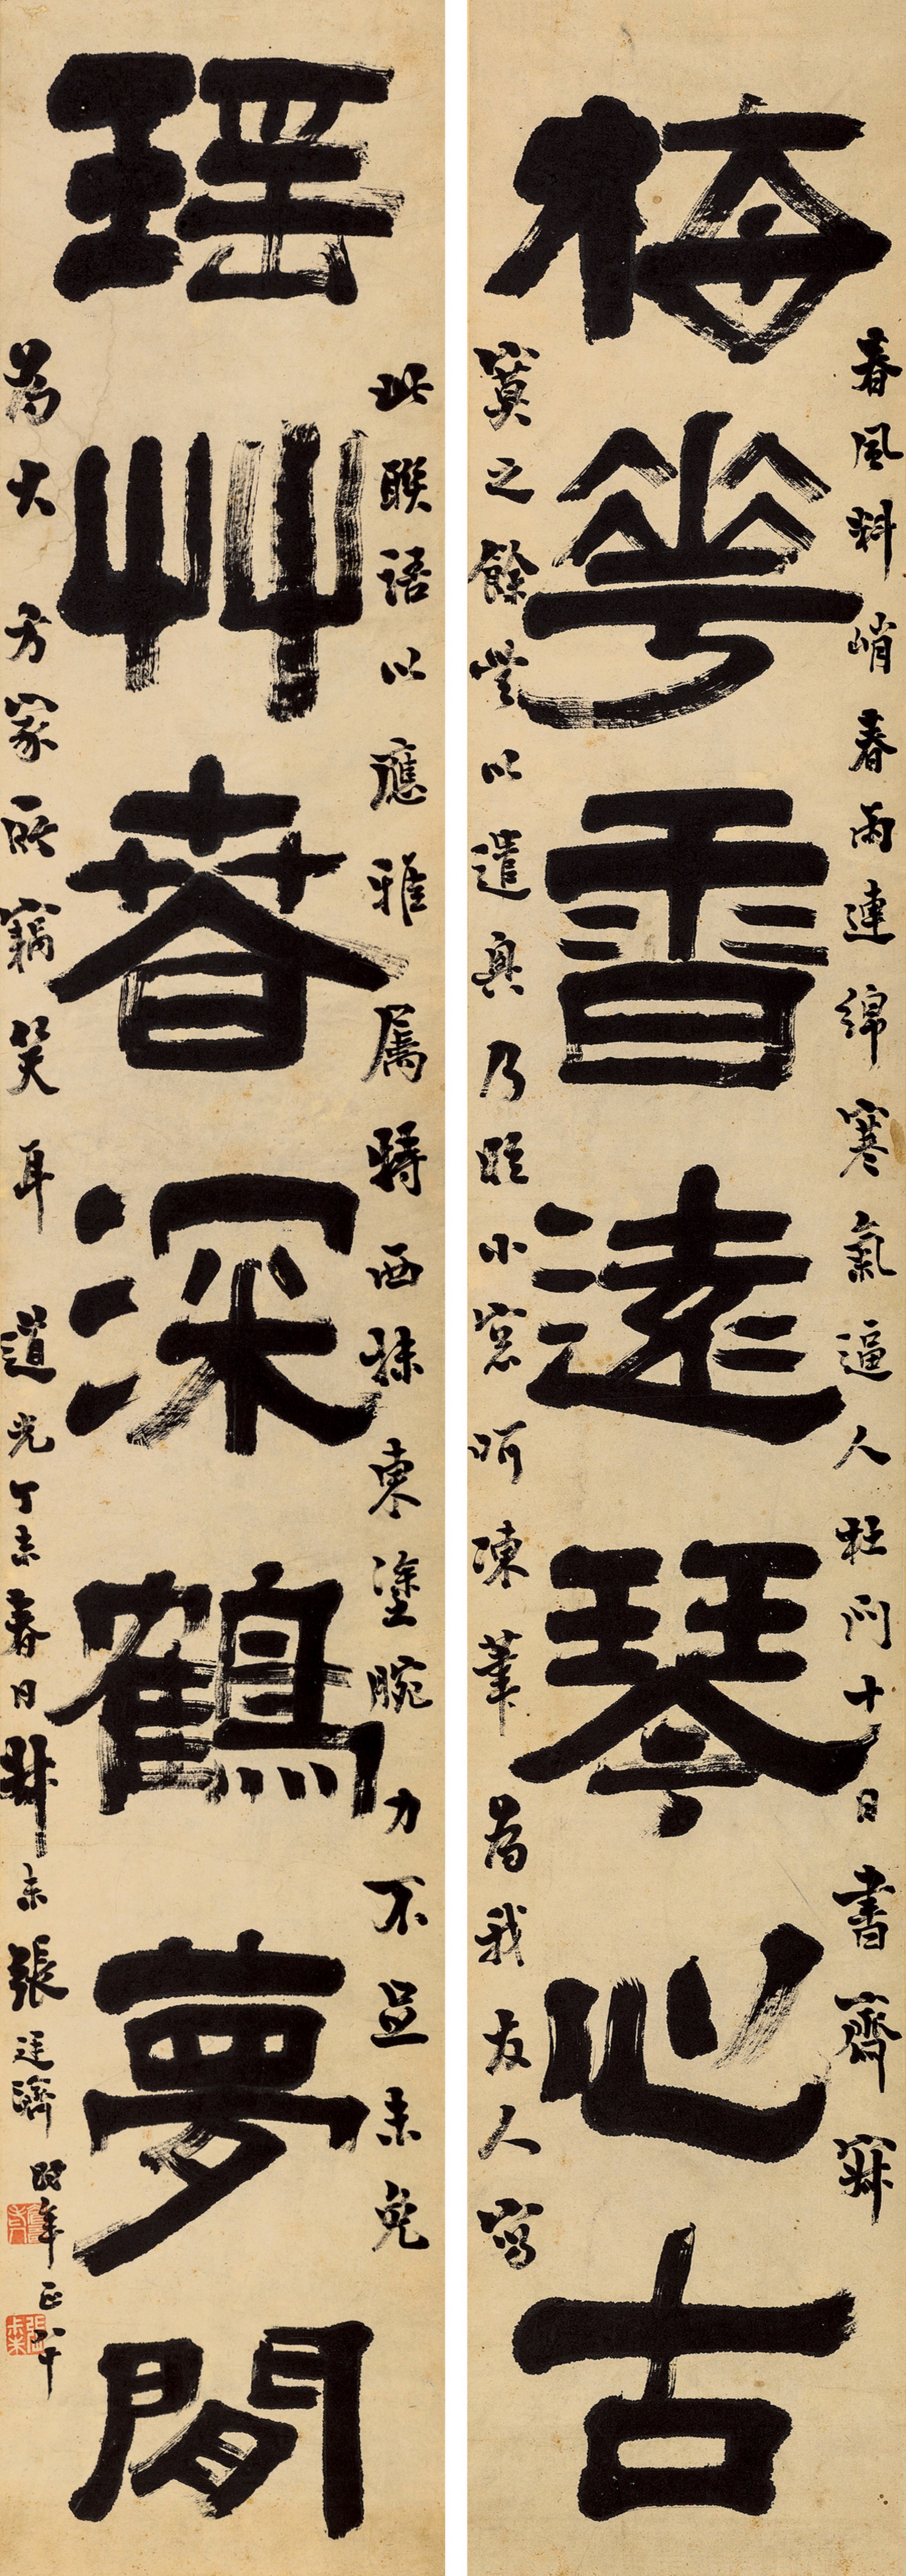 梅華香遠琴心古
春風料峭春雨連綿寒氣逼人杜門十日書齋寂
寞之餘無以遣興乃臨小窓呵凍筆為我友人寫
瑶艸春深鶴夢閒
此聯語以應雅屬特西抹東塗腕力不足未免
為大方家所竊笑耳道光丁未春日叔未張廷濟時年正八十